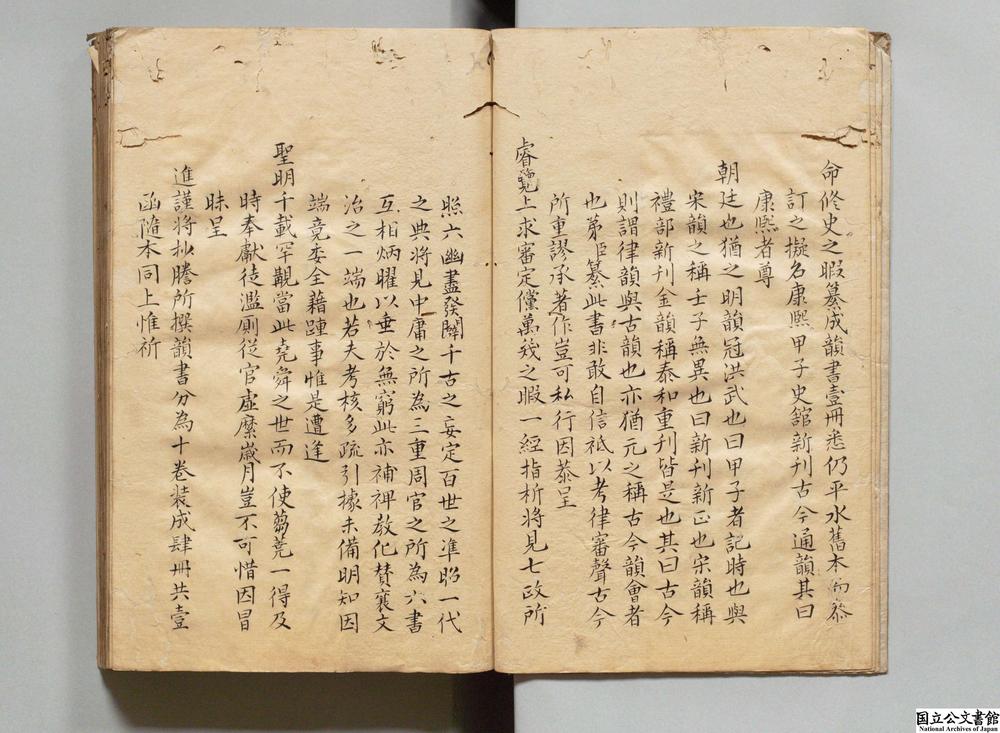 命修史之暇纂成韻書壹冊悉仍平水舊本而叅
訂之擬名康熙甲子史舘新刊古今通韻其曰
康熙者尊
朝廷也猶之明韻冠洪武也曰甲子者記時也與
宋韻之稱壬子無異也曰新刊新正也宋韻稱
禮部新刊金韻稱泰和重刊皆是也其曰古今
則謂律韻與古韻也亦猶元之稱古今韻會者
也第臣纂此書非敢自信祇以考律審聲古今
所重謬承著作豈可私行因恭呈
睿覽上求審定儻萬幾之暇一經指析將見七政所
照六幽盡發闢千古之妄定百世之準昭一代
之典將見中庸之所為三重周官之所為六書
互相炳曜以垂於無窮此亦補裨教化賛襄文
治之一端也若夫考核多疏引據未備明知因
端竟委全藉踵事惟是遭逢
聖明千載罕覯當此堯舜之世而不使蒭蕘一得及
時奉獻徒濫厠從官虛縻歲月豈不可惜因冒
昧呈
進謹將抄謄所撰韻書分為十卷裝成肆冊共壹
函隨本同上惟祈
国立公文書館
National Archives of Japan